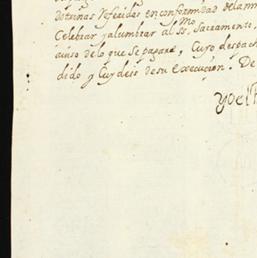 dotrinas Referidas en conformidad de la m
Celebrar y alumbrar al SS. Mo Sacramento.
de lo que se pagara, Cuyo despach
dido y Cuydeis de su Execucion. De
yo el